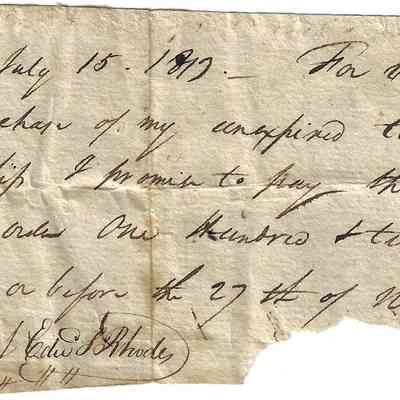 July 15. 1813. — For v
chase of my unexpired t
ship I promise to pay th
order One Hundred & ta
or before the 27th of N
Edwd S Rhodes
" " "